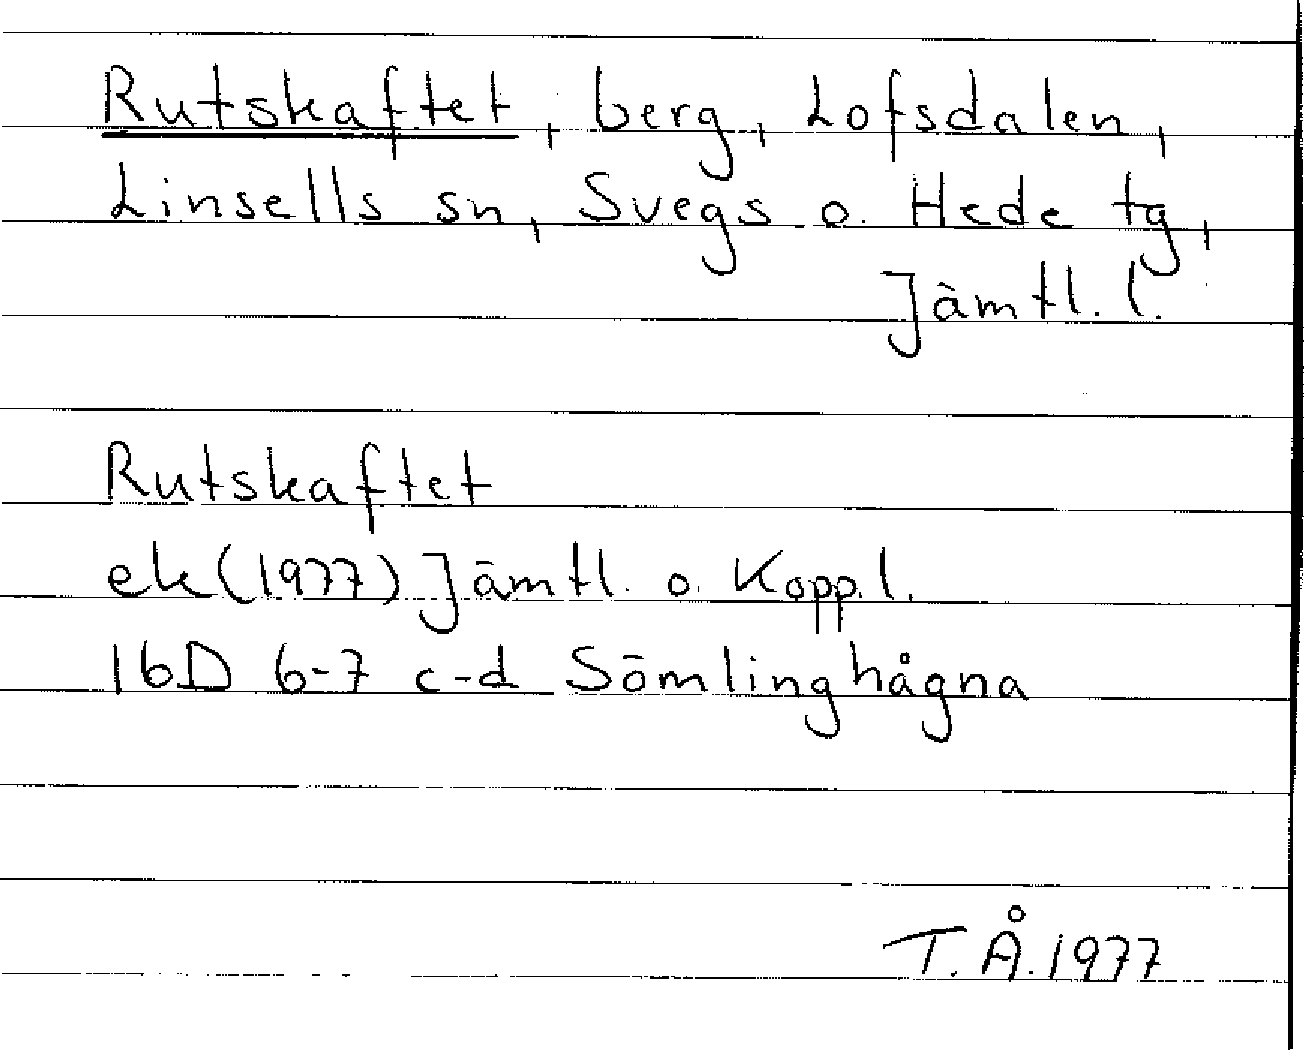 Rutskaftet, berg, Lofsdalen,
Linsells sn, Svegs o. Hede tg,
Jämtl. l.
Rutskaftet
ek (1977) Jämtl. o. Kopp. l.
16D 6-7 c-d Sömlinghågna
T.Å. 1977